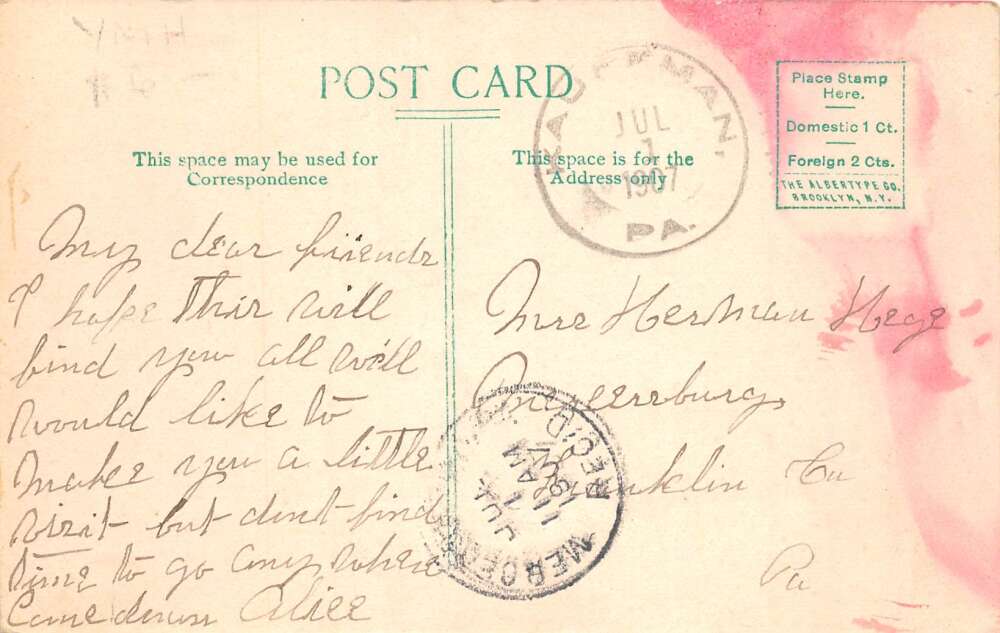 POST CARD
This space may be used for
Correspondence
This space is for the
Address only
KAUFFMAN,
JUL
1
1907
PA.
Place Stamp
Here.
Domestic 1 Ct.
Foreign 2 Cts.
THE ALBERTYPE CO.
BROOKLYN, N.Y.
My dear friends
I hope this will
find you all well
would like to
make you a little
visit but dont find
time to go any where
Come down Alice
Mrs Herman Hege
Mercersburg
Franklin Co
Pa
REC'D.
JUL
1
11 AM
1907